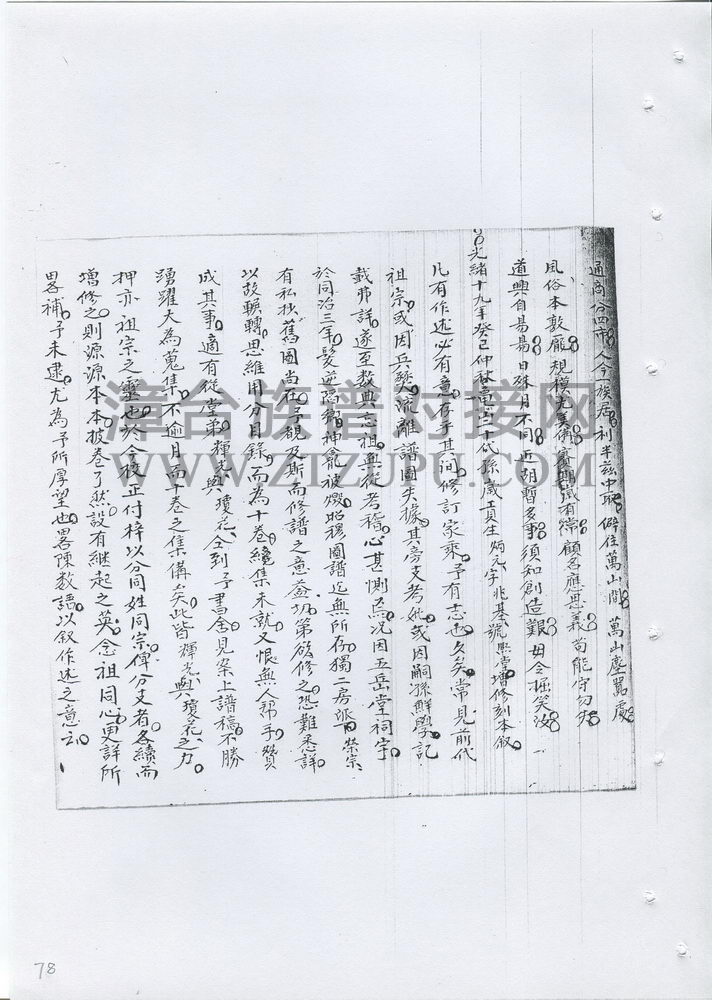 通商分四市人今一族居利半茲中取僻往萬山間萬山塵罵處
風俗本敦龐規模有常顧名應思義苟能守勿失
道興自昜昜日殊月不同近朝暫多事須知創造艱毋令掘笑汝
光緒十九年癸巳仲秋南山三十代孫歲貢生炳元字兆基號熙堂增修刻本叙
凡有作述必有意存乎其間修訂家乘予有志也久矣常見前代
祖宗或因兵燹流離譜圖失據其旁支考妣或因嗣孫鮮學記
載弗詳遂至数典忘祖無從考稽心甚惻焉况因五岳堂祠宇
於同治三年髮逆隔鄉神龕被燬昭穆圖譜迄無所存獨二房派下榮宗
有私抄舊圖尚在予覩及斯而修譜之意益切第欲修之恐難悉詳
以故輾轉思維用分目錄而為十卷續集未就又恨無人帮手贊
成其事適有從堂弟輝光與瓊花仝到予書舍見案上譜稿不勝
踴躍大為蒐集不逾月而十卷之集備矣此皆輝光與瓊花之力
抑亦祖宗之靈也於今校正付梓以分同姓同宗俾分支者各續而
增修之則源源本本披卷了然設有継起之英念祖同心更詳所
畧補予未逮尤為予所厚望也畧陳数語以叙作述之意云
漳台族谱对接网
WWW.ZTZUPU.COM
78